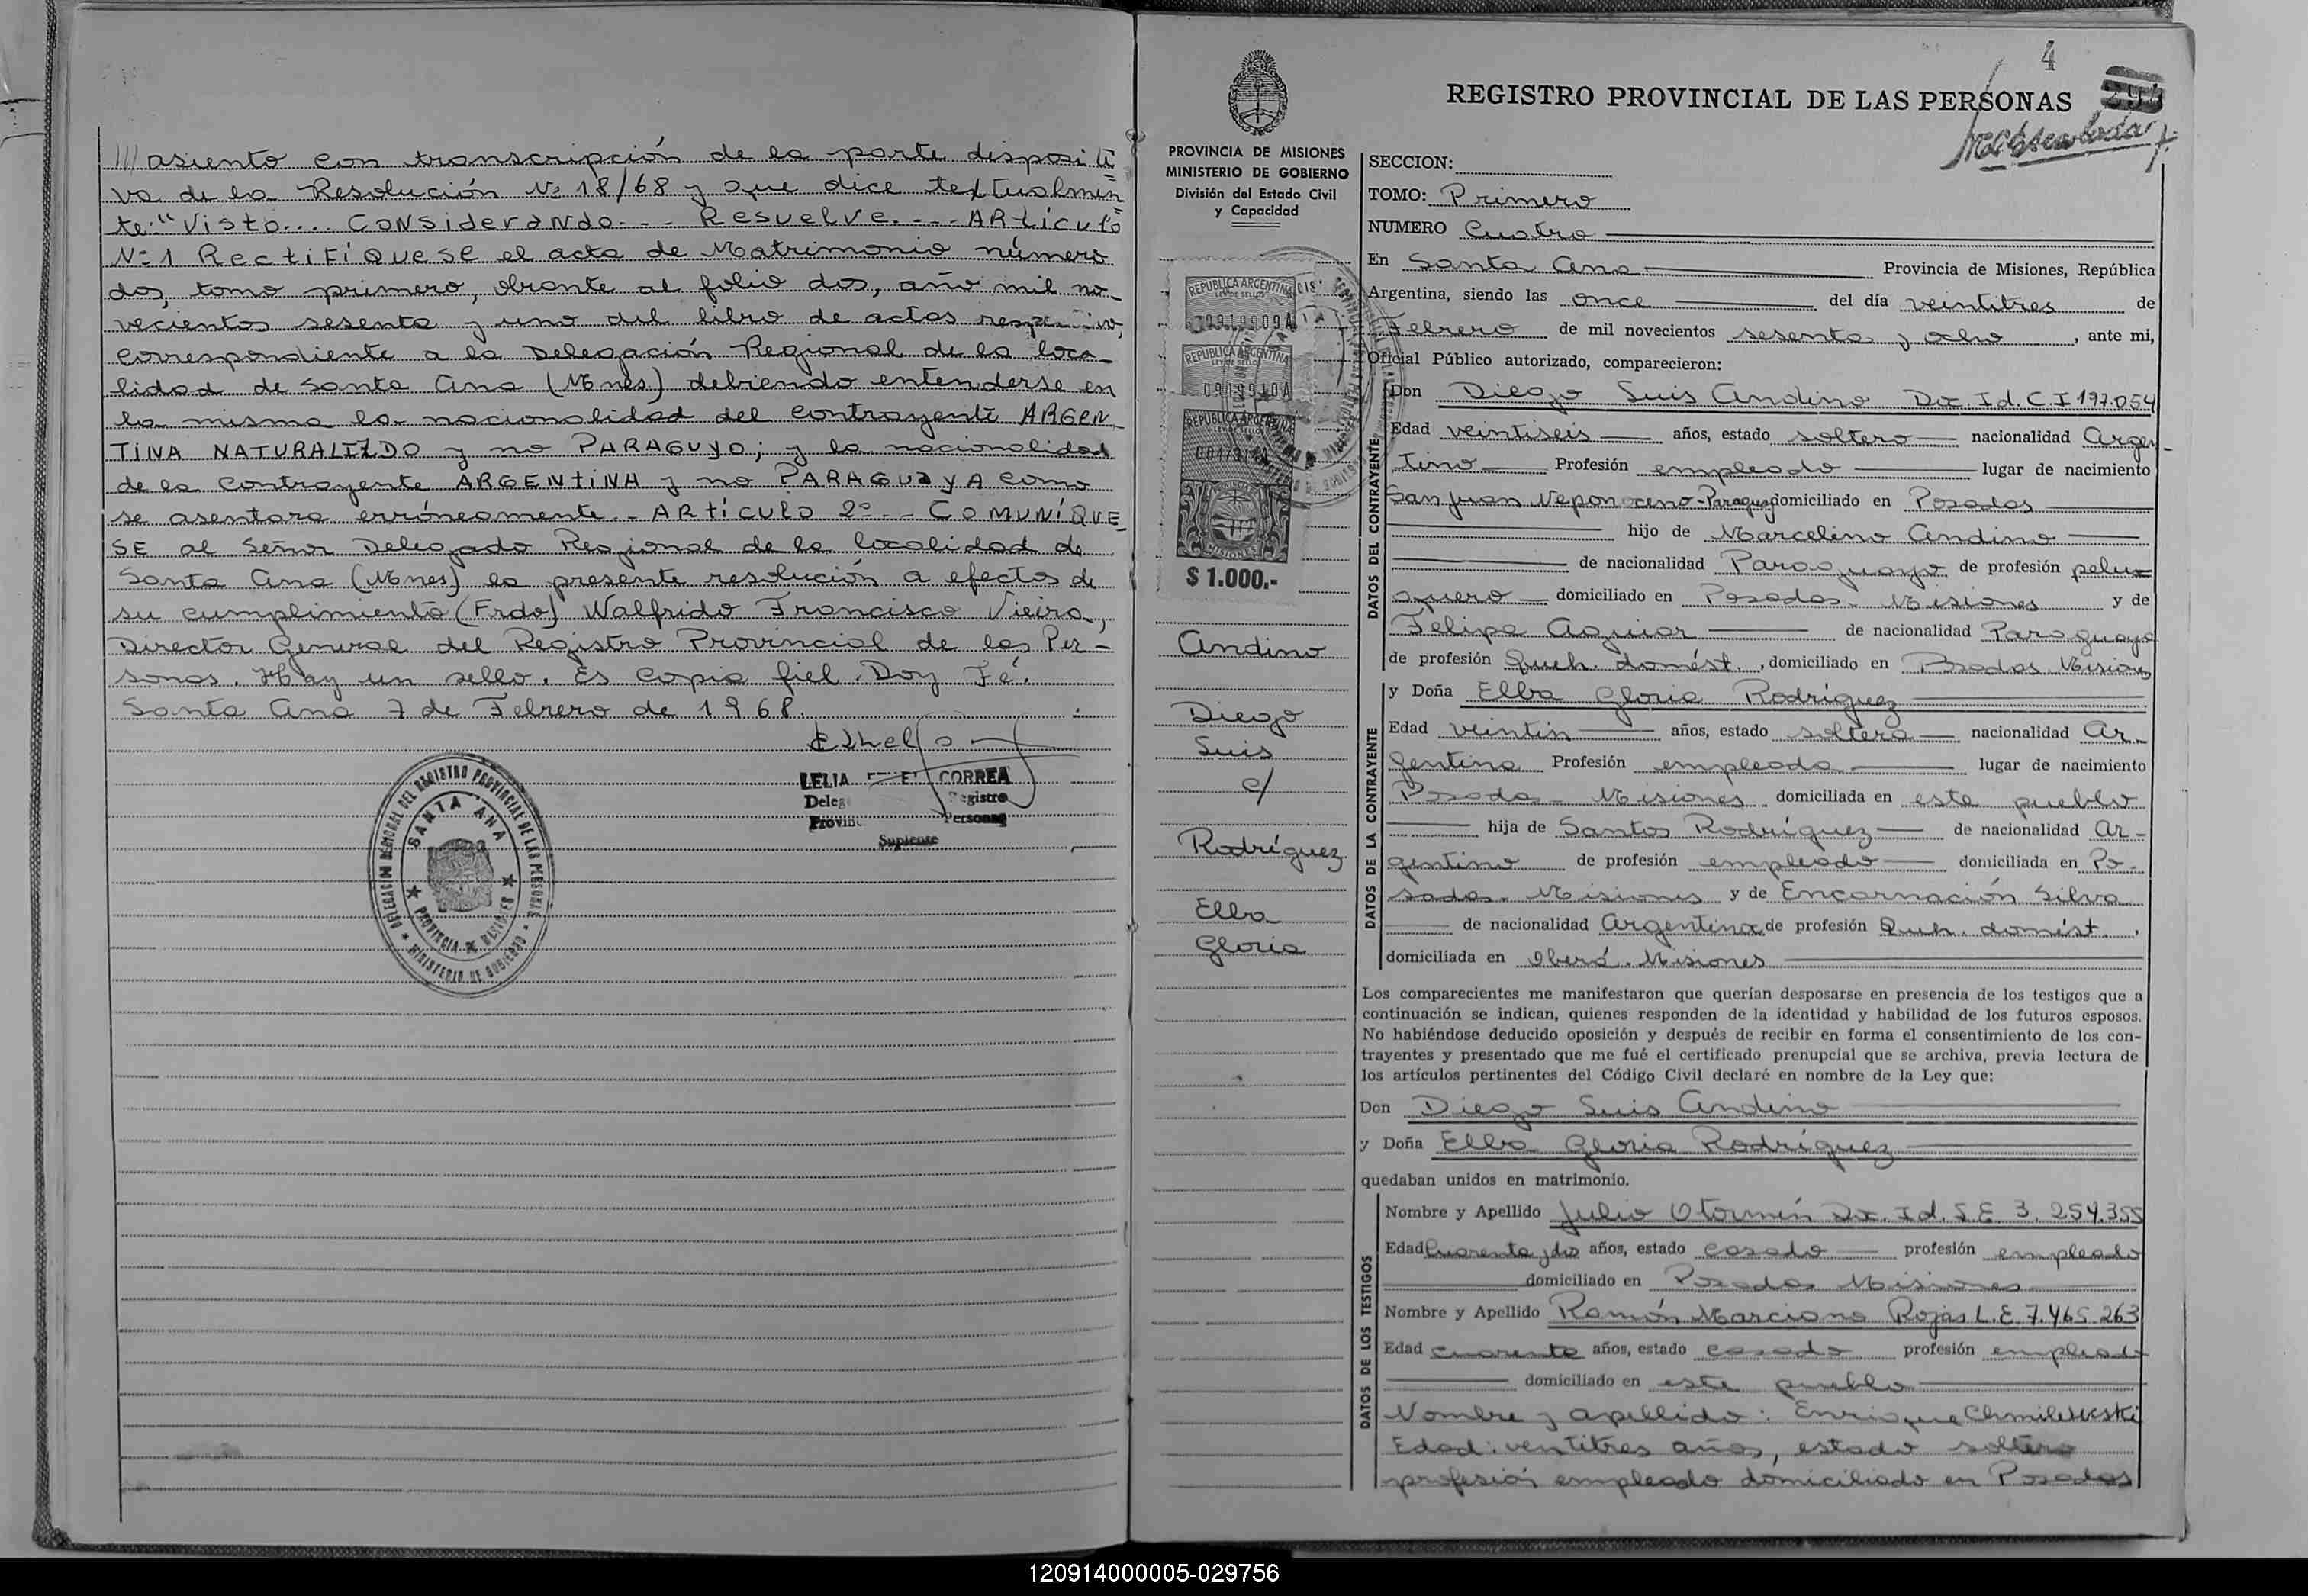 /// asiento con transcripción de la parte dispositi
va de la Resolución Nº 18/68 y que dice textualmen
te: "Visto.... CONSIderANdo... Resuelve.... ARtículo
Nº 1 RectiFíQUeSe el acta de Matrimonio número
dos, tomo primero, obrante al folio dos, año mil no-
vecientos sesenta y uno del libro de actas respectivo,
correspondiente a la Delegación Regional de la loca-
lidad de Santa Ana (Mnes) debiendo entenderse en
la misma la nacionalidad del contrayente ARGEN
TINA NATURALIZDO y no PARAGUYO; y la nacionalidad
de la contrayente ARGENtiNA y no PARAGUAYA como
se asentara erróneamente.- ARtíCULO 2º.- COMUNíQUE
SE al Señor Delegado Regional de la localidad de
Santa Ana (Mnes) la presente resolución a efectos de
su cumplimiento (Frdo) Walfrido Francisco Vieira,
Director General del Registro Provincial de las Per-
sonas. Hay un sello. Es copia fiel. Doy Fé.
Santa Ana 7 de Febrero de 1968.
LELIA CORREA
Registro
Personas
Suplente
DELEGACION REGIONAL DEL REGISTRO PROVINCIAL DE LAS PERSONAS
MINISTERIO DE GOBIERNO
SANTA ANA
PROVINCIA DE MISIONES
4
REGISTRO PROVINCIAL DE LAS PERSONAS
PROVINCIA DE MISIONES
MINISTERIO DE GOBIERNO
División del Estado Civil
y Capacidad
REPUBLICA ARGENTINA
REPUBLICA ARGENTINA
REPUBLICA ARGENTINA
MISIONES
$ 1.000.-
Andino
Diego
Luis
c/
Rodríguez
Elba
Gloria
SECCION:
TOMO: Primero
NUMERO Cuatro
En Santa Ana Provincia de Misiones, República
Argentina, siendo las once del día veintitres de
Febrero de mil novecientos sesenta y ocho, ante mi,
Oficial Público autorizado, comparecieron:
DATOS DEL CONTRAYENTE
Don Diego Luis Andino Doc. Id. C.I 197.054
Edad veintiseis años, estado soltero nacionalidad Argen
tino Profesión empleado lugar de nacimiento
San Juan Neponoceno-Paraguay domiciliado en Posadas
hijo de Marcelino Andino
de nacionalidad Paraguayo de profesión pelu
quero domiciliado en Posadas - Misiones y de
Felipa Aguiar de nacionalidad Paraguaya
de profesión Queh. domést., domiciliado en Posadas Misiones
DATOS DE LA CONTRAYENTE
y Doña Elba Gloria Rodríguez
Edad veintiún años, estado soltera nacionalidad Ar-
gentina Profesión empleada lugar de nacimiento
Posadas - Misiones domiciliada en este pueblo
hija de Santos Rodríguez de nacionalidad Ar-
gentino de profesión empleado domiciliada en Po-
sadas - Misiones y de Encarnación Silva
de nacionalidad Argentina de profesión Queh. domést.,
domiciliada en Oberá. Misiones
Los comparecientes me manifestaron que querían desposarse en presencia de los testigos que a
continuación se indican, quienes responden de la identidad y habilidad de los futuros esposos.
No habiéndose deducido oposición y después de recibir en forma el consentimiento de los con-
trayentes y presentado que me fué el certificado prenupcial que se archiva, previa lectura de
los artículos pertinentes del Código Civil declaré en nombre de la Ley que:
Don Diego Luis Andino
y Doña Elba Gloria Rodríguez
quedaban unidos en matrimonio.
DATOS DE LOS TESTIGOS
Nombre y Apellido Julio Otormín Doc. Id. L.E 3.254.355
Edad Cuarenta y dos años, estado casado profesión empleado
domiciliado en Posadas Misiones
Nombre y Apellido Ramón Marciano Rojas L.E 7.465.263
Edad cuarenta años, estado casado profesión empleado
domiciliado en este pueblo
Nombre y apellido: Enrique Chmilewski
Edad: ventitres años, estado soltero
profesión empleado domiciliado en Posadas
120914000005-029756